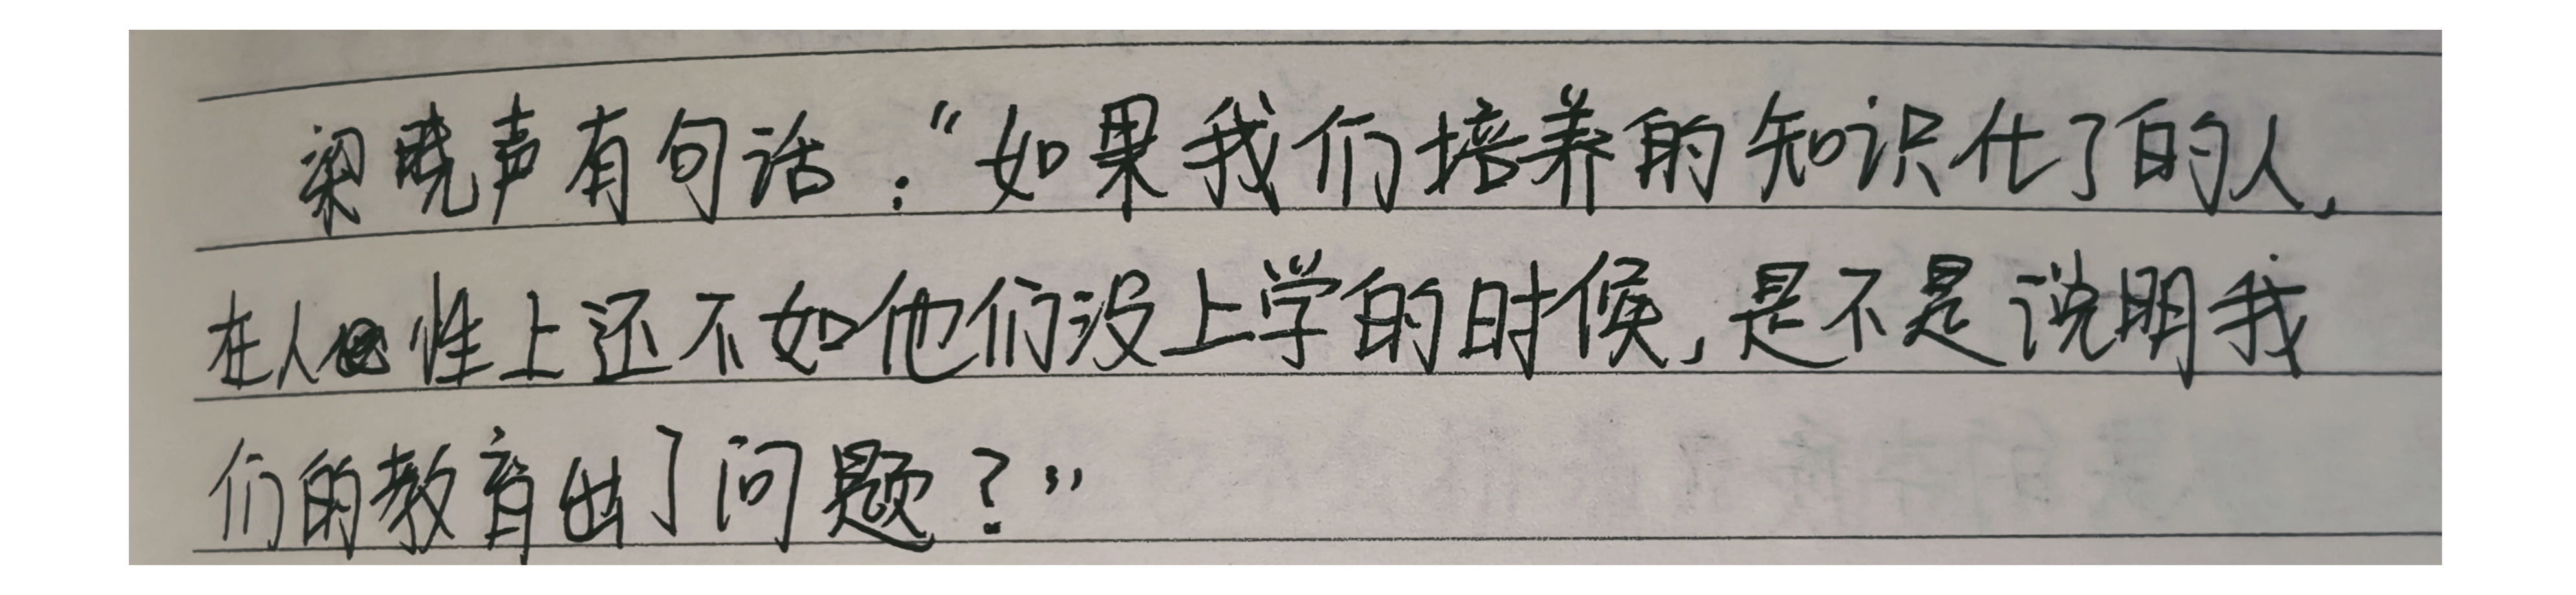 梁晓声有句话：“如果我们培养的知识化了的人，
在人性上还不如他们没上学的时候，是不是说明我
们的教育出了问题？”